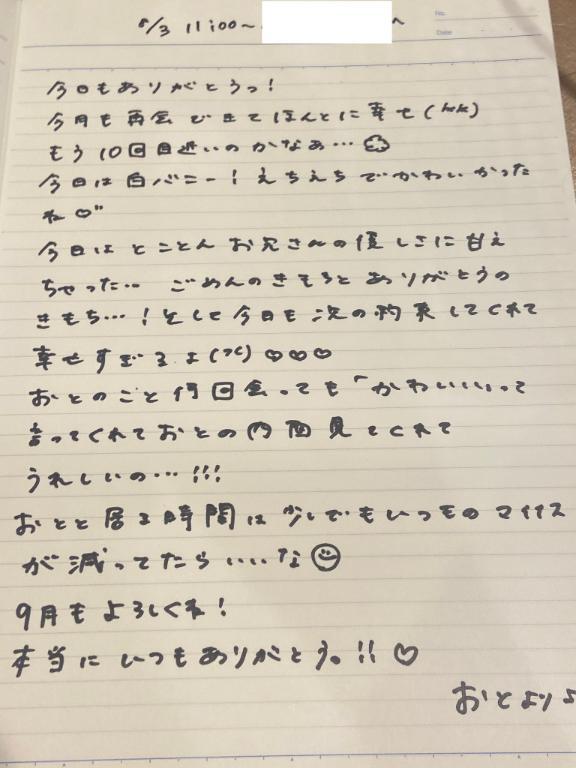 8/3 11:00～ へ
No.
Date
今日もありがとうっ!
今月も再会できてほんとに幸せ(
もう10回目近いのかなぁ…
今日は白バニー!えちえちでかわいかった
ね♡"
今日はとことんお兄さんの優しさに甘え
ちゃった… ごめんのきもちとありがとうの
きもち…!そして今日も次の約束してくれて
幸せすぎるよ( ) ♡♡♡
おとのこと何回会っても「かわいい」って
言ってくれておとの内面見てくれて
うれしいの…!!!
おとと居る時間は少しでもいつものマイナス
が減ってたらいいな☺
9月もよろしくね!
本当にいつもありがとう。!!♡
おとより♪